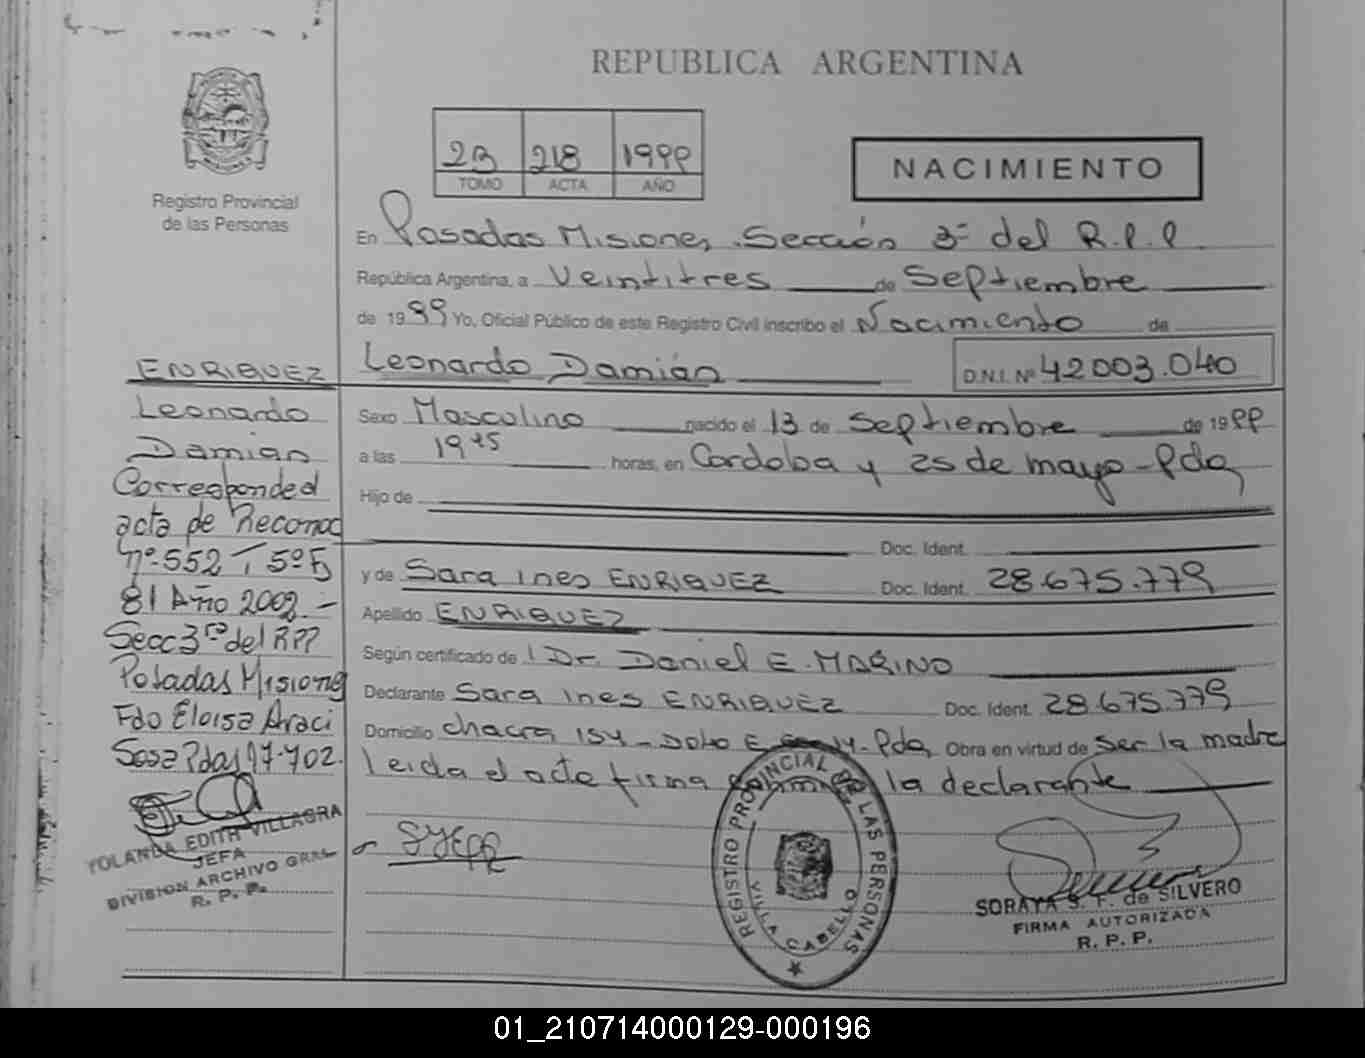 REPUBLICA ARGENTINA
Registro Provincial
de las Personas
23 218 1999
TOMO ACTA AÑO
NACIMIENTO
En Posadas Misiones, Sección 3ª del R.P.P.
República Argentina, a Veintitres de Septiembre
de 1999 Yo, Oficial Público de este Registro Civil inscribo el Nacimiento de
Leonardo Damián D.N.I. Nº 42003.040
Sexo Masculino nacido el 13 de Septiembre de 1999
a las 19 horas, en Cordoba y 25 de mayo - Pdas
Hijo de
Doc. Ident.
y de Sara Ines ENRIQUEZ Doc. Ident. 28.675.779
Apellido ENRIQUEZ
Según certificado de Dr. Daniel E. MARINO
Declarante Sara Ines ENRIQUEZ Doc. Ident. 28.675.779
Domicilio chacra 154 - Pdas Obra en virtud de ser la madre
leida el acta firma la declarante
ENRIQUEZ
Leonardo
Damian
Corresponde al
acta de Reconoc
Nº 552 T 5º F
81 Año 2002.-
Secc 3ra del RPP
Posadas Misiones
Fdo Eloisa Araci
Sosa Pdas 17-702.
YOLANDA EDITH VILLAGRA
JEFA
DIVISION ARCHIVO GRAL
R. P. P.
REGISTRO PROVINCIAL DE LAS PERSONAS
VILLA CABELLO
SORAYA S. F. de SILVERO
FIRMA AUTORIZADA
R. P. P.
01_210714000129-000196